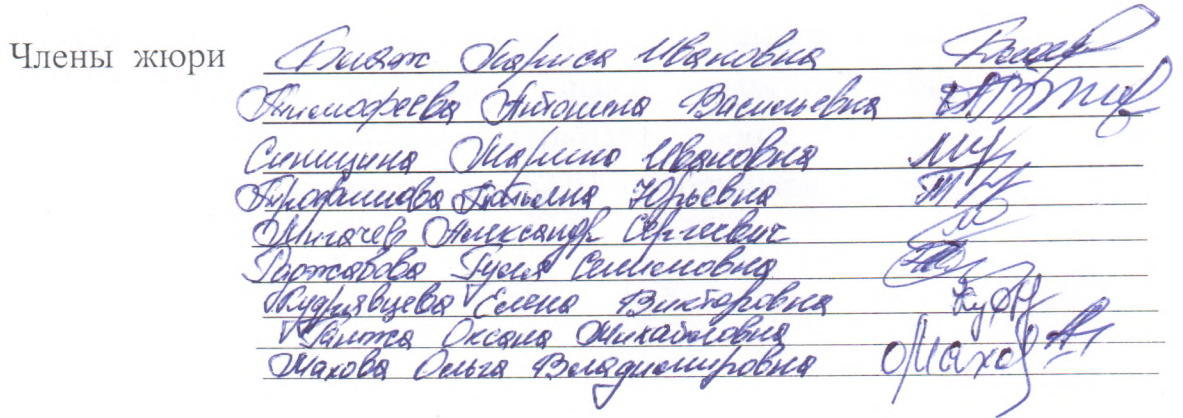 Члены жюри Билж Лариса Ивановна
Тимофеева Антонина Васильевна
Синицина Марина Ивановна
Трофимова Татьяна Юрьевна
Лигачев Александр Сергеевич
Раджабова Гуля Селимовна
Кудрявцева Елена Викторовна
Оксана Михайловна
Махова Ольга Владимировна